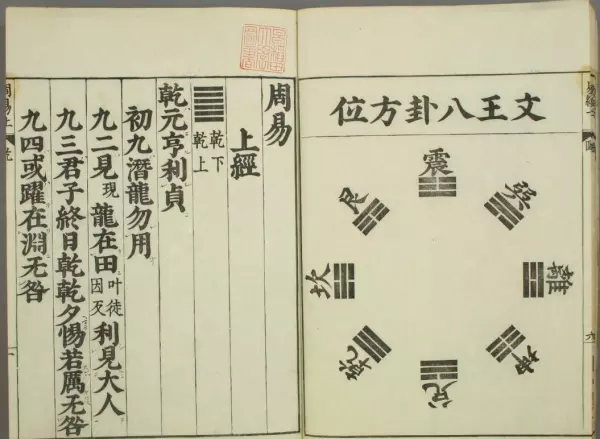 文王八卦方位
震
巽
離
坤
兌
乾
坎
艮
周易
上經
䷀ 乾下 乾上
乾元亨利貞
初九潛龍勿用
九二見現龍在田叶徒因反利見大人
九三君子終日乾乾夕惕若厲无咎
九四或躍在淵无咎
周易上